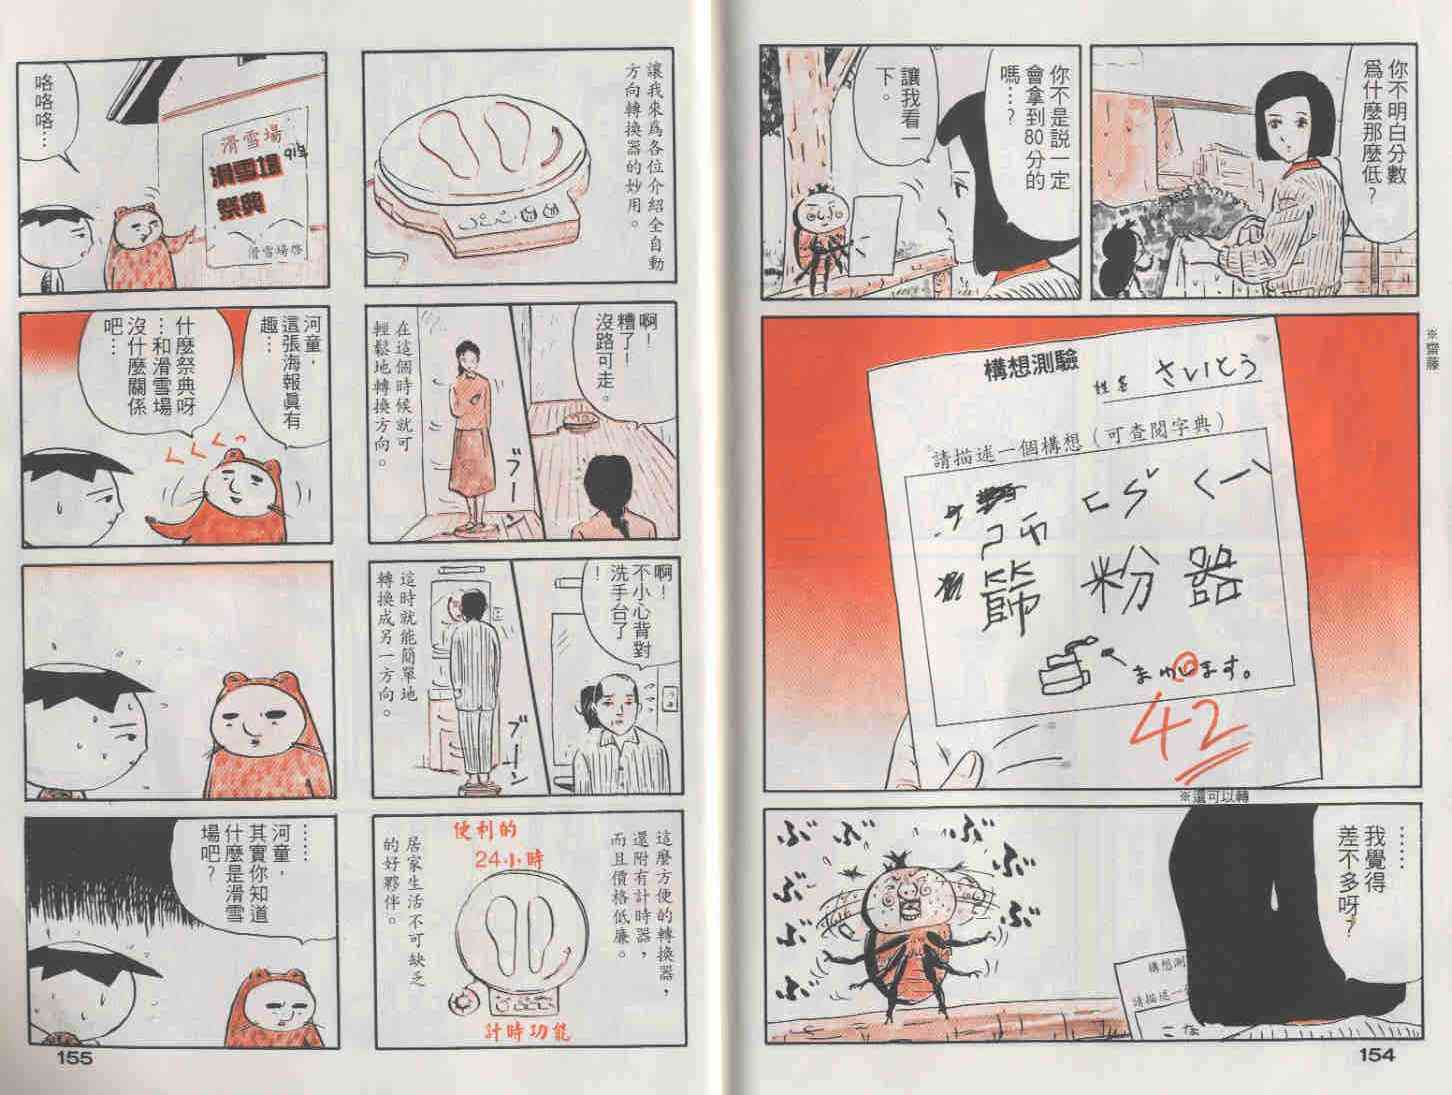 你不明白分數
爲什麼那麼低?
你不是説一定
會拿到80分的
嗎…?
讓我看一
下。
※齋藤
構想測驗
姓名 さいとう
請描述一個構想(可查閱字典)
篩粉器
まわします。
42
※還可以轉
……
我覺得
差不多呀?
ぶぶ
ぶぶ
ぶぶ
ぶぶ
構想測
請描述一
こな
154
讓我來爲各位介紹全自動
方向轉換器的妙用。
啊!
糟了!
沒路可走。
ブーン
在這個時候就可
輕鬆地轉換方向。
啊!
不小心背對
洗手台了
!
ブーン
這時就能簡單地
轉換成另一方向。
這麼方便的轉換器,
還附有計時器,
而且價格低廉。
便利的
24小時
計時功能
居家生活不可缺乏
的好夥伴。
滑雪場
滑雪場
祭典
滑雪場啓
咯咯咯…
河童,
這張海報眞有
趣…
什麼祭典呀
…和滑雪場
沒什麼關係
吧…
くくくっ
……
河童,
其實你知道
什麼是滑雪
場吧?
155